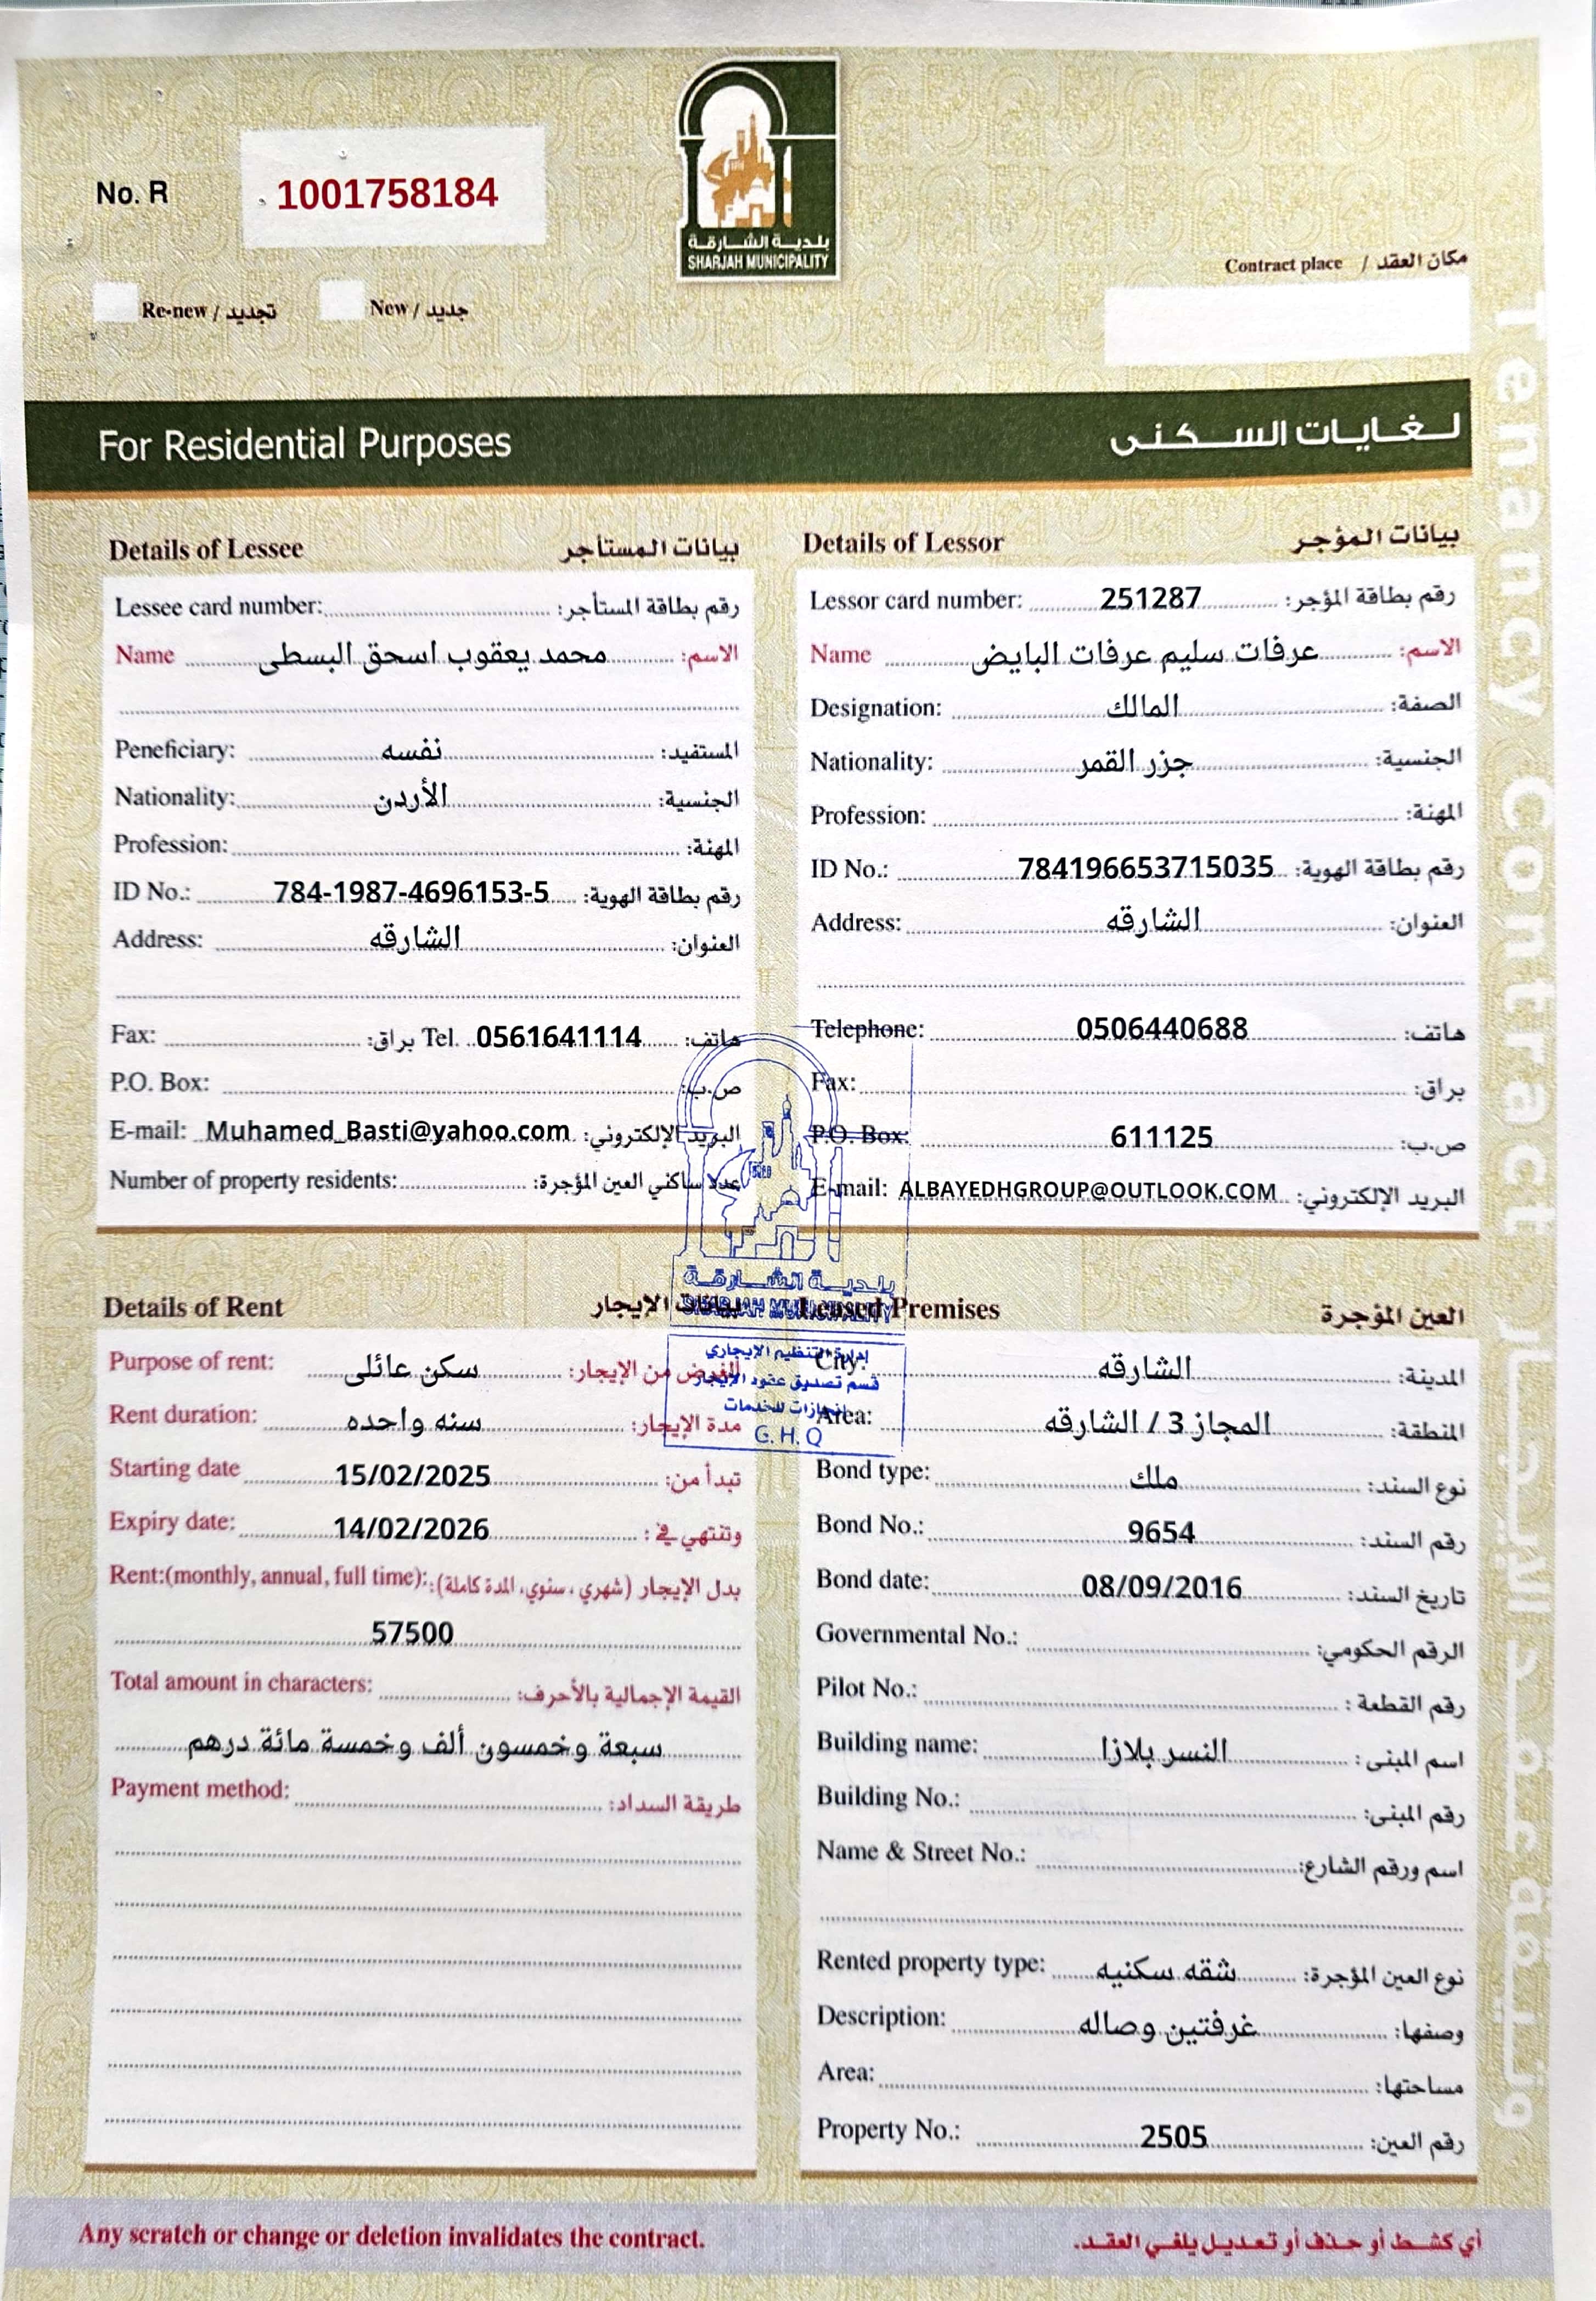 No. R 1001758184
بلدية الشارقة
SHARJAH MUNICIPALITY
Contract place / مكان العقد
Re-new / تجديد New / جديد
For Residential Purposes لغايات السكنى
Tenancy Contract
Details of Lessee بيانات المستأجر
Lessee card number: رقم بطاقة المستأجر:
Name محمد يعقوب اسحق البسطى الاسم:
Peneficiary: نفسه المستفيد:
Nationality: الأردن الجنسية:
Profession: المهنة:
ID No.: 784-1987-4696153-5 رقم بطاقة الهوية:
Address: الشارقه العنوان:
Fax: براق: Tel. 0561641114 هاتف:
P.O. Box: ص.ب:
E-mail: Muhamed_Basti@yahoo.com البريد الإلكتروني:
Number of property residents: عدد ساكني العين المؤجرة:
Details of Lessor بيانات المؤجر
Lessor card number: 251287 رقم بطاقة المؤجر:
Name عرفات سليم عرفات البايض الاسم:
Designation: المالك الصفة:
Nationality: جزر القمر الجنسية:
Profession: المهنة:
ID No.: 784196653715035 رقم بطاقة الهوية:
Address: الشارقه العنوان:
Telephone: 0506440688 هاتف:
Fax: براق:
P.O. Box: 611125 ص.ب:
E-mail: ALBAYEDHGROUP@OUTLOOK.COM البريد الإلكتروني:
بلدية الشارقة
SHARJAH MUNICIPALITY
إدارة التنظيم الإيجاري
قسم تصديق عقود الإيجار
إنجازات للخدمات
G.H.Q
Details of Rent بيانات الإيجار
Purpose of rent: سكن عائلى الغرض من الإيجار:
Rent duration: سنه واحده مدة الإيجار:
Starting date 15/02/2025 تبدأ من:
Expiry date: 14/02/2026 وتنتهي في:
Rent:(monthly, annual, full time): بدل الإيجار (شهري، سنوي، المدة كاملة):
57500
Total amount in characters: القيمة الإجمالية بالأحرف:
سبعة وخمسون ألف وخمسة مائة درهم
Payment method: طريقة السداد:
Leased Premises العين المؤجرة
City: الشارقه المدينة:
Area: المجاز 3 / الشارقه المنطقة:
Bond type: ملك نوع السند:
Bond No.: 9654 رقم السند:
Bond date: 08/09/2016 تاريخ السند:
Governmental No.: الرقم الحكومي:
Pilot No.: رقم القطعة :
Building name: النسر بلازا اسم المبنى :
Building No.: رقم المبنى:
Name & Street No.: اسم ورقم الشارع:
Rented property type: شقه سكنيه نوع العين المؤجرة:
Description: غرفتين وصاله وصفها:
Area: مساحتها:
Property No.: 2505 رقم العين:
Any scratch or change or deletion invalidates the contract. أي كشط أو حذف أو تعديل يلغي العقد.